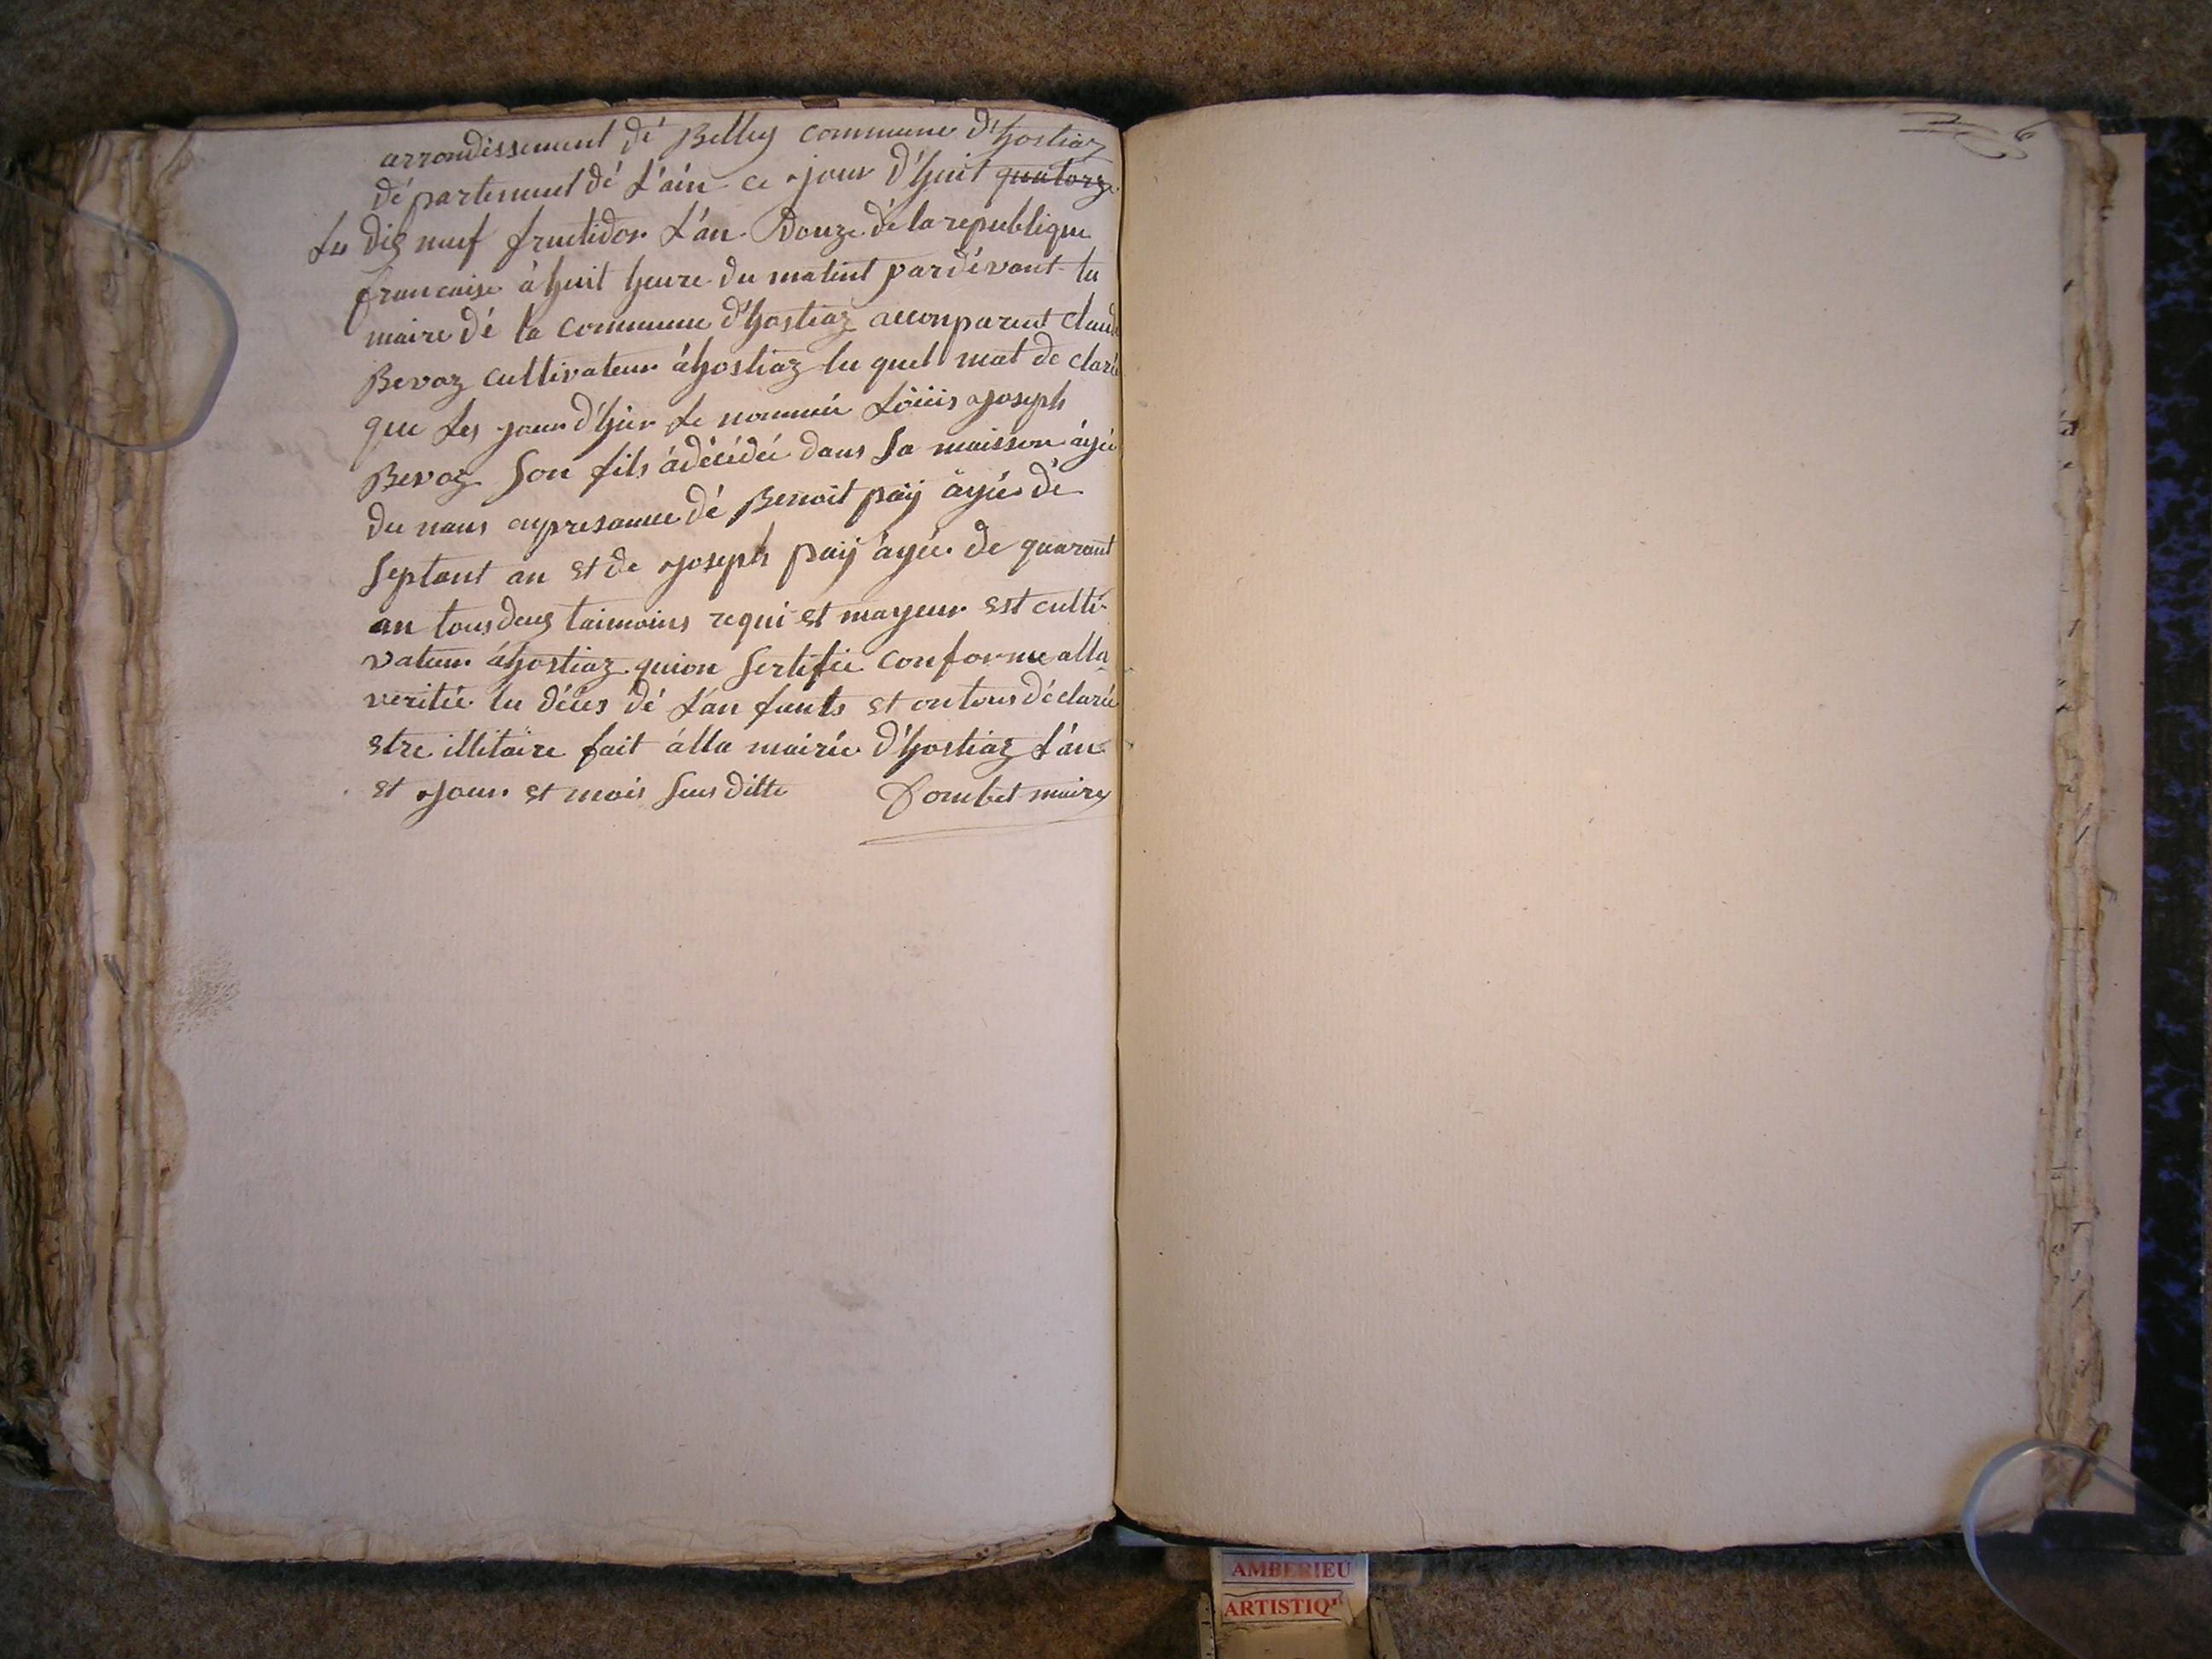 arrondissement dé Belley commune d'hostiaz
dé partement dé L'ain ce jour d'huit quatorze
Le dis neuf fructidor L'an Douze dé la republique
francaise à huit heure du matint pardévant le
maire dé la commune d'hostiaz aconparut claude
Bevoz cultivateur à hostiaz le quel mat de claré
que Les jour d'hier Le nommée Loüis joseph
Bevoz son fils à décédée dans sa maisson âgée
de nans enpresance dé Benoit paÿ âgée dé
septant an et de joseph paÿ âgée de quarant
an tous deus taimoins requi et mageur est culti-
vateur à hostiaz qui on sertifiée conforme alla
veritée le décès dé L'an fants et on tous déclarée
etre illitaire fait à lla mairie d'hostiaz L'an
et jour et mois sus ditte Dombet maire
6
AMBERIEU
ARTISTIQ